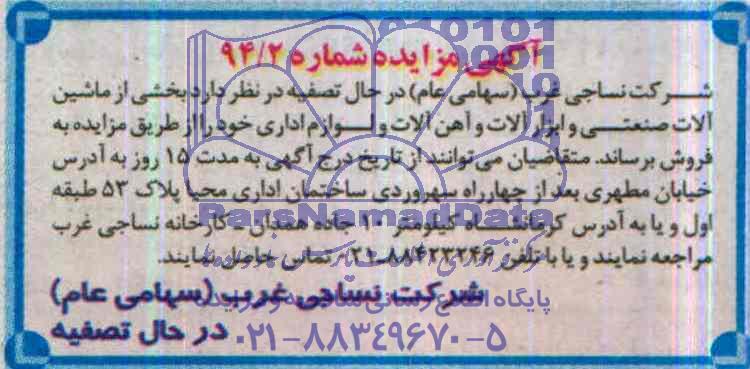 آگهی مزایده شماره ۹۴/۲
شرکت نساجی غرب (سهامی عام) در حال تصفیه در نظر دارد بخشی از ماشین
آلات صنعتی و ابزار آلات و آهن آلات و لوازم اداری خود را از طریق مزایده به
فروش برساند. متقاضیان می توانند از تاریخ درج آگهی به مدت ۱۵ روز به آدرس
خیابان مطهری بعد از چهارراه سهروردی ساختمان اداری محیا پلاک ۵۳ طبقه
اول و یا به آدرس کرمانشاه کیلومتر ۱۰ جاده همدان - کارخانه نساجی غرب
مراجعه نمایند و یا با تلفن ۸۸۴۲۳۲۴۶-۰۲۱ تماس حاصل نمایند.
شرکت نساجی غرب (سهامی عام)
در حال تصفیه
ParsNamadData
پایگاه
۰۲۱-۸۸۳۴۹۶۷۰-۵